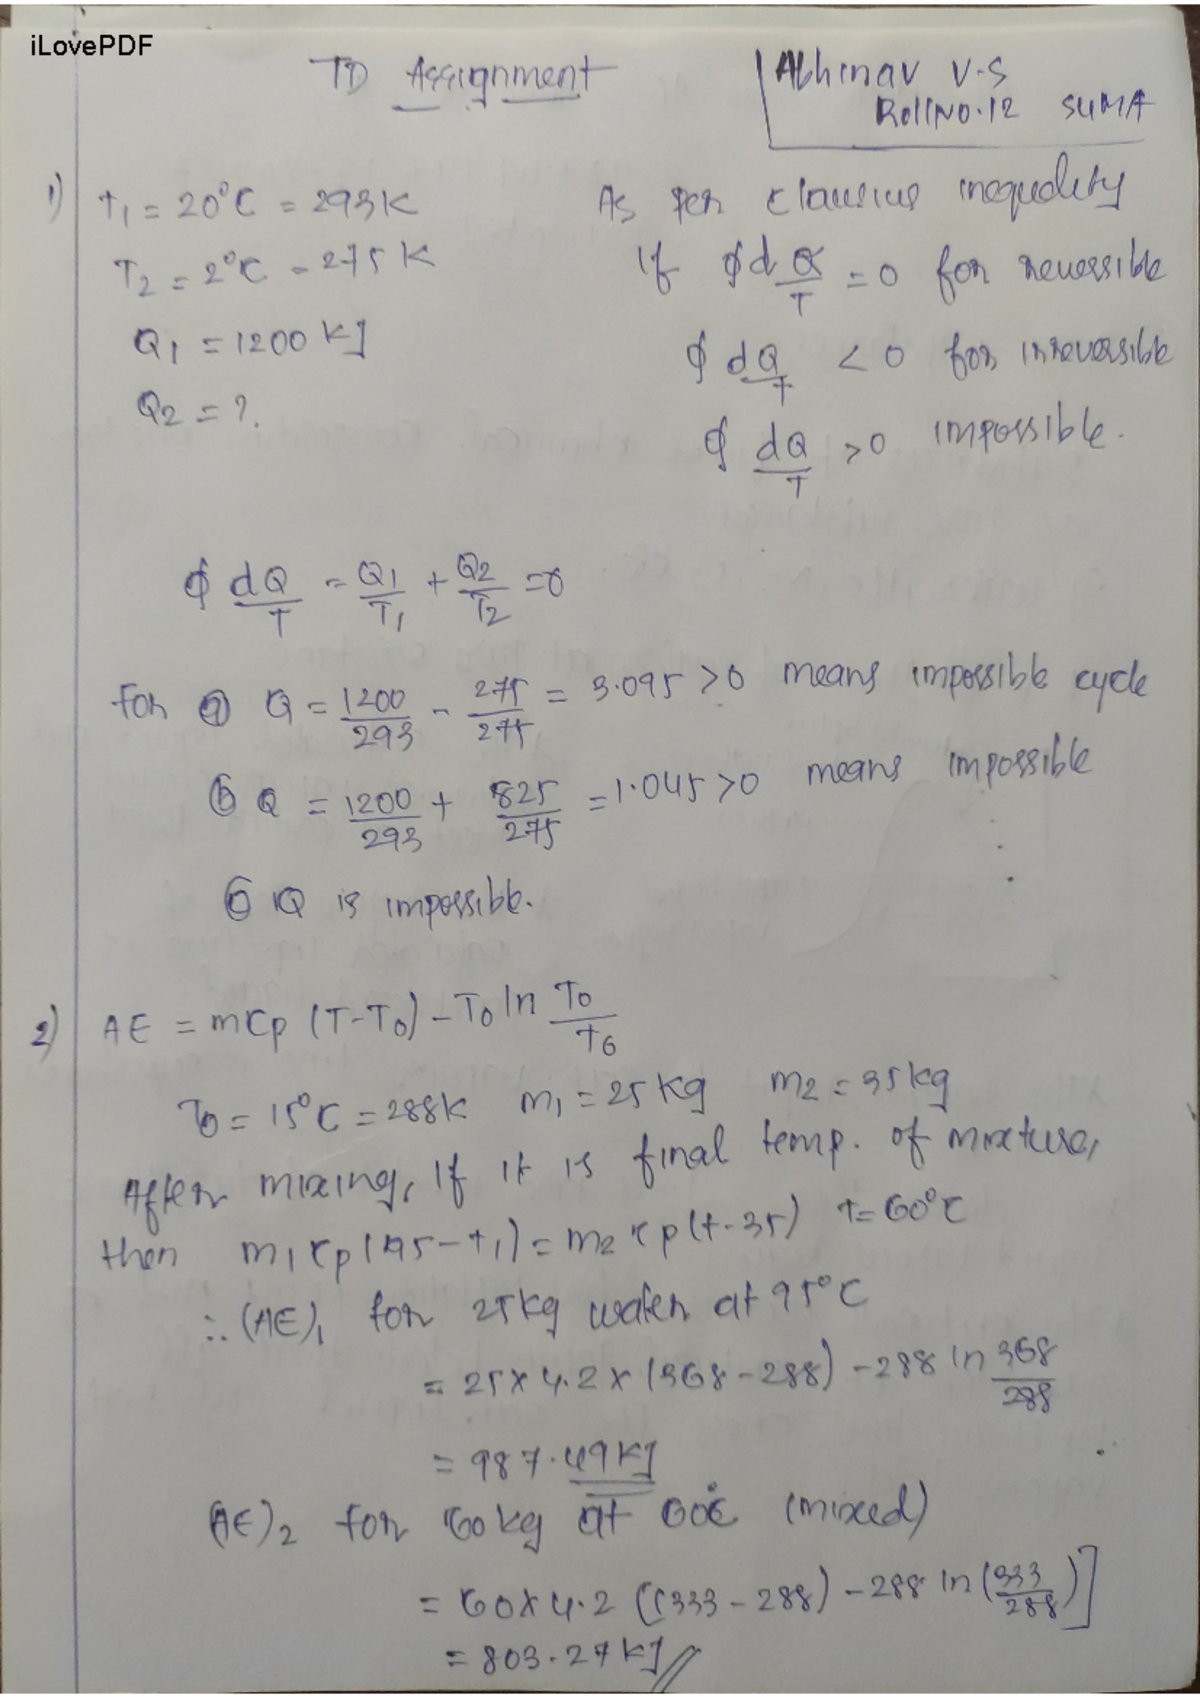 iLovePDF
TD Assignment
Abhinav V.S
Roll No. 12 SUMA
1) T1 = 20°C = 293K
T2 = 2°C = 275K
Q1 = 1200 KJ
Q2 = ?.
As per clausius inequality
If ∮ dQ/T = 0 for reversible
∮ dQ/T < 0 for irreversible
∮ dQ/T > 0 impossible.
∮ dQ/T = Q1/T1 + Q2/T2 = 0
For (a) Q = 1200/293 - 275/275 = 3.095 > 0 means impossible cycle
(b) Q = 1200/293 + 825/275 = 1.045 > 0 means impossible
(c) Q is impossible.
2) AE = mCp (T-T0) - T0 ln T0/T6
T0 = 15°C = 288K m1 = 25kg m2 = 35kg
After mixing, if it is final temp. of mixture,
then m1 cp (95-t1) = m2 cp (t-35) t= 60°C
∴ (AE)1 for 25kg water at 95°C
= 25 x 4.2 x (368-288) - 288 ln 368/288
= 987.49 KJ
(AE)2 for 60kg at 60°C (mixed)
= 60 x 4.2 ((333-288) - 288 ln (333/288)]
= 803.27 KJ //